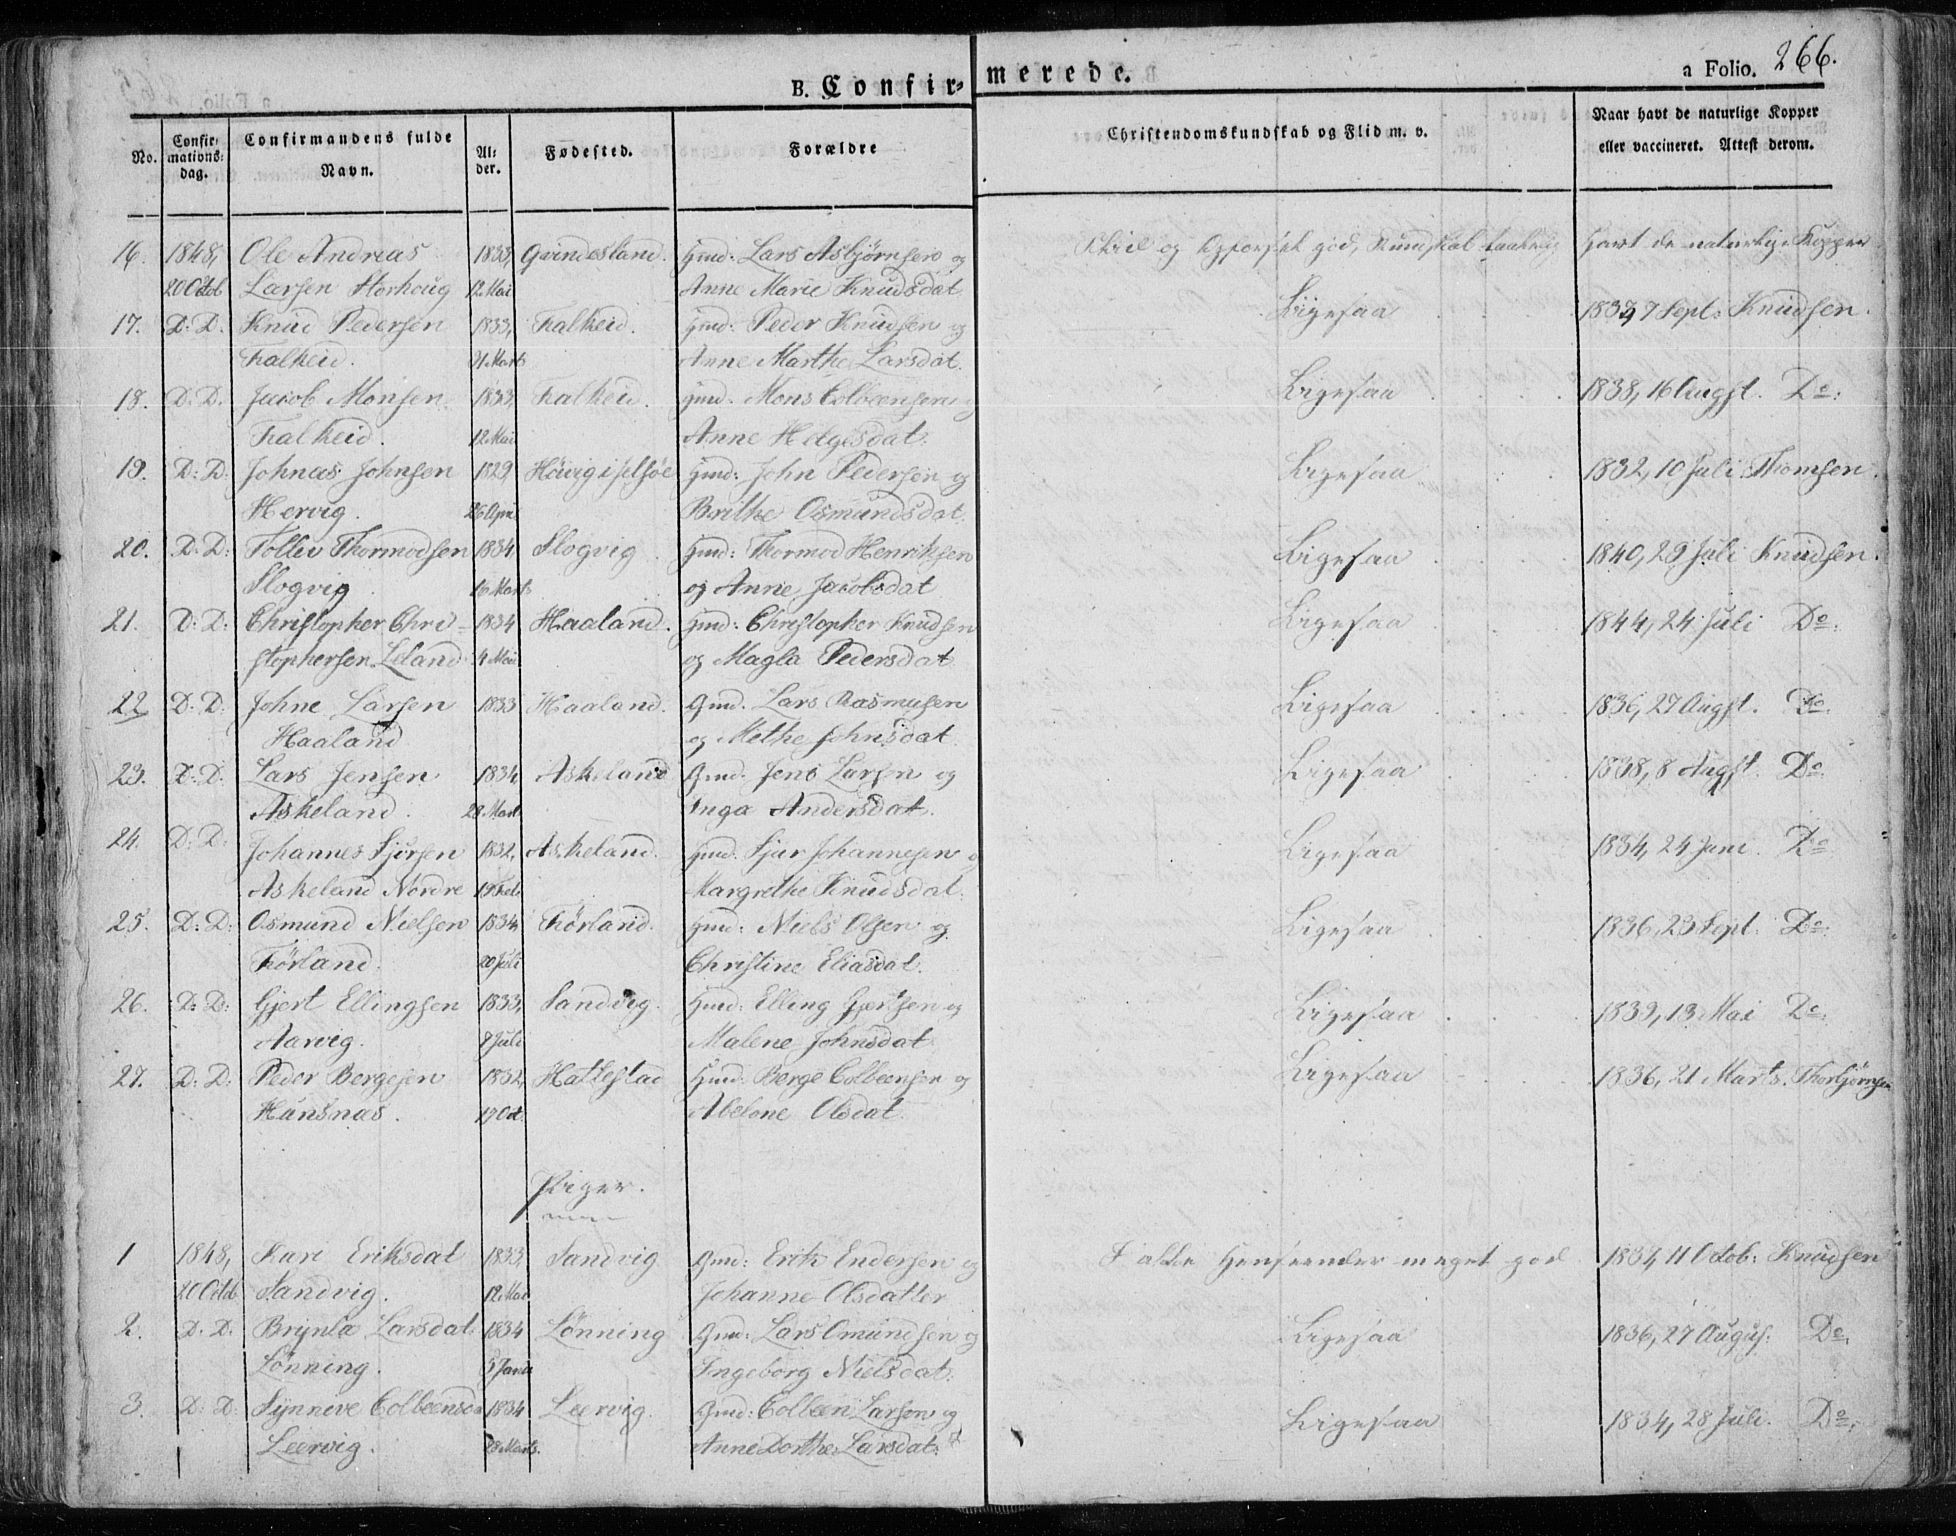 B. Confir-
merede.
a Folio. 266.
No.
Confir-
mations-
dag.
Confirmandens fulde
Navn.
Al-
der.
Fødested.
Forældre
Christendomskundskab og Flid m. v.
Naar havt de naturlige Kopper
eller vaccineret. Attest derom.
16. 1848, Ole Andreas 1833, Gvindesland. Gmd. Lars Asbjørnsen og Flid og Opførsel god, Kundskab taalelig havt de naturlige Kopper
20 Octob Larsen Storhoug 12 Mai Anne Marie Knudsdat
17. D: D. Knud Pedersen 1833, Falkeid. Gmd: Peder Knudsen og Ligesaa 1839, 7 Sept: Knudsen.
Falkeid. 21 Marts Anne Marthe Larsdat.
18. D: D. Jacob Monsen 1833, Falkeid. Gmd. Mons Colbeensen og Ligesaa 1838, 16 Augst. Do:
Falkeid. 12 Mai Anne Helgesdat.
19. D: D: Johnas Johnsen 1829, Gmd: John Pedersen og Ligesaa 1832, 10 Juli Thomsen.
Hervig. 26 Apri Brithe Osmundsdat.
20. D: D: Tollev Thormodsen 1834 Slogvig Gmd: Thormod Henriksen Ligesaa 1840, 29 Juli Knudsen.
Slogvig 16 Marts og Anne Jacobsdat
21. D: D: Christopher Chri- 1834 Haaland. Gmd: Christopher Knudsen Ligesaa 1844, 24 Juli Do:
stophersen Leland 4 Mai og Magla Pedersdat
22 D: D. Johne Larsen 1833 Haaland. Gmd. Lars Rasmusen Ligesaa 1836, 27 Augst. Do.
Haaland og Methe Johnsdat
23. D: D. Lars Jensen 1834, Askeland Gmd. Jens Larsen og Ligesaa 1838, 8 Augst. Do
Askeland. 28 Marts Inga Andersdat.
24. D: D. Johannes Sjursen 1832, Askeland. Gmd. Sjur Johannesen og Ligesaa 1834, 24 Juni Do
Askeland Nordre 19 Feb Margrethe Knudsdat.
25. D: D: Osmund Nielsen 1834 Førland. Gmd: Niels Olsen og Ligesaa 1836, 23 Sept. Do:
Førland. 20 Juli Christine Eliasdat.
26. D: D: Gjert Ellingsen 1833, Sandvig. Gmd: Elling Gjertsen og Ligesaa 1839, 13 Mai Do:
Aarvig. 7 Juli Malene Johnsdat
27. D: D: Peder Bergesen 1832, Hattestad Gmd: Berge Colbeensen og Ligesaa 1836, 21 Marts. Thorbjørnsen
Hansnas. 17 Oct. Abelone Olsdat.
Piger.
1 1848, Kari Eriksdat 1833, Sandvig Gmd: Erik Endersen og I alle Henseender meget god 1834 11 Octob: Knudsen
20 Octob Sandvig. 12 Mai Johanne Olsdatter
2. D: D. Brynla Larsdat. 1834 Lønning Gmd: Lars Omundsen og Ligesaa 1836, 27 Augus: Do.
Lønning. 5 Janu Ingeborg Nielsdat.
3. D: D. Synneve Colbeensd 1834 Leervig. Gmd: Colbeen Larsen og Ligesaa 1834, 28 Juli. Do:
Leervig. 28 Marts. Anne Dorthe Larsdat.